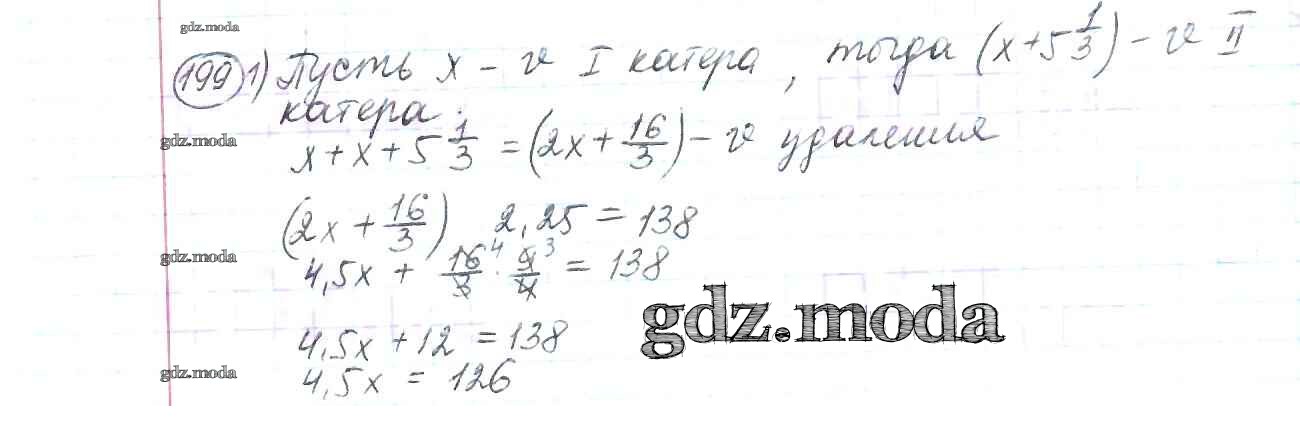 gdz.moda
199 1) Пусть x – v I катера, тогда (x+5 1/3) – v II
катера.
gdz.moda
x + x + 5 1/3 = (2x + 16/3) – v удаления
(2x + 16/3) 2,25 = 138
gdz.moda
4,5x + 16/3 4 · 9/4 3 = 138
gdz.moda
4,5x + 12 = 138
gdz.moda
4,5x = 126